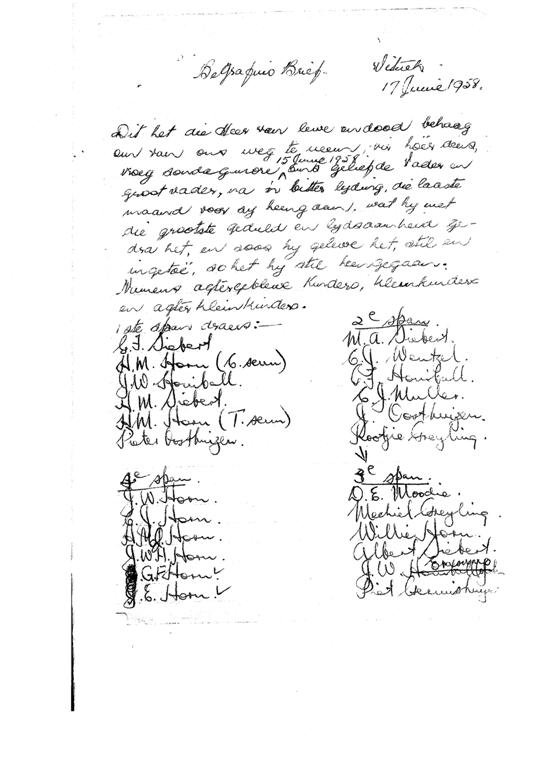 Begrafnis Brief.
17 Junie 1958.
Dit het die Heer van lewe en dood behaag
om van ons weg te neem, vir hoër diens,
15 Junie 1958
vroeg sondagmore, ons geliefde Vader en
grootvader, na 'n bitter lyding, die laaste
maand voor sy heengaan, wat hy met
die grootste geduld en lydsaamheid ge-
dra het, en soos hy gelewe het, stil en
ingetoë, so het hy stil heengegaan.
Namens agtergeblewe Kinders, kleinkinders
en agterkleinkinders.
1ste span draers:—
G. F. Siebert
H.M. Horn (C. seun)
J.W. Honiball.
H.M. Siebert.
H.M. Horn (T. seun)
Pieter Oosthuizen.
2e span.
M.A. Siebert.
C.J. Wentzel.
C.F. Honiball.
C.J. Muller.
J. Oosthuizen.
Kootjie Greyling.
3e span.
D.E. Moodie.
Machiel Greyling.
Willie Horn.
Albert Siebert.
J.W.
Piet
4e span.
J.W. Horn.
C.J. Horn.
Horn.
J.W.H. Horn.
G.F. Horn.
J.E. Horn.